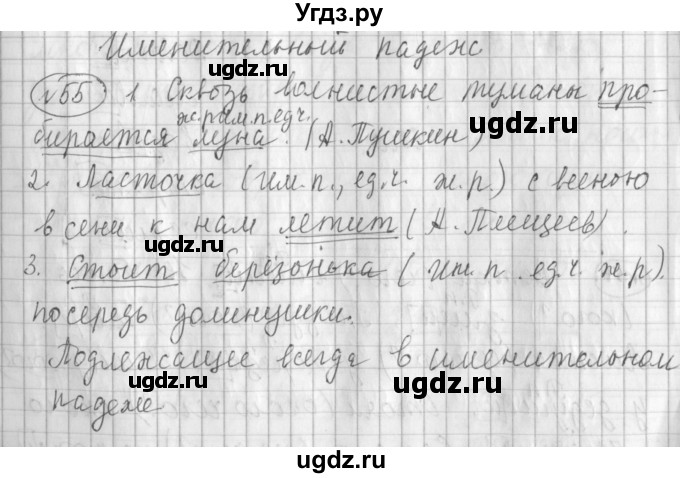 Угдз.ру
Именительный падеж
№55 1 Сквозь волнистые туманы про-
ж.р.им.п.ед.ч.
бирается луна. (А. Пушкин)
2. Ласточка (им.п., ед.ч. ж.р.) с весною
в сени к нам летит (А. Плещеев).
3. Стоит берёзонька (им.п. ед.ч. ж.р).
посередь долинушки.
Подлежащее всегда в именительном
падеже
ugdz.ru
ugdz.ru
ugdz.ru
ugdz.ru
ugdz.ru
ugdz.ru
ugdz.ru
ugdz.ru
ugdz.ru
ugdz.ru